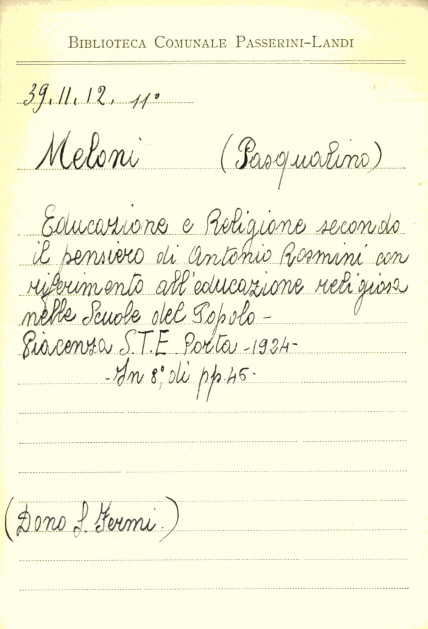 BIBLIOTECA COMUNALE PASSERINI-LANDI
39.11.12. 11°
Meloni (Pasqualino)
Educazione e Religione secondo
il pensiero di Antonio Rosmini con
riferimento all'educazione religiosa
nelle Scuole del Popolo -
Piacenza S.T.E. Porta - 1924 -
- In 8°, di pp. 45 -
(Dono S. Fermi.)